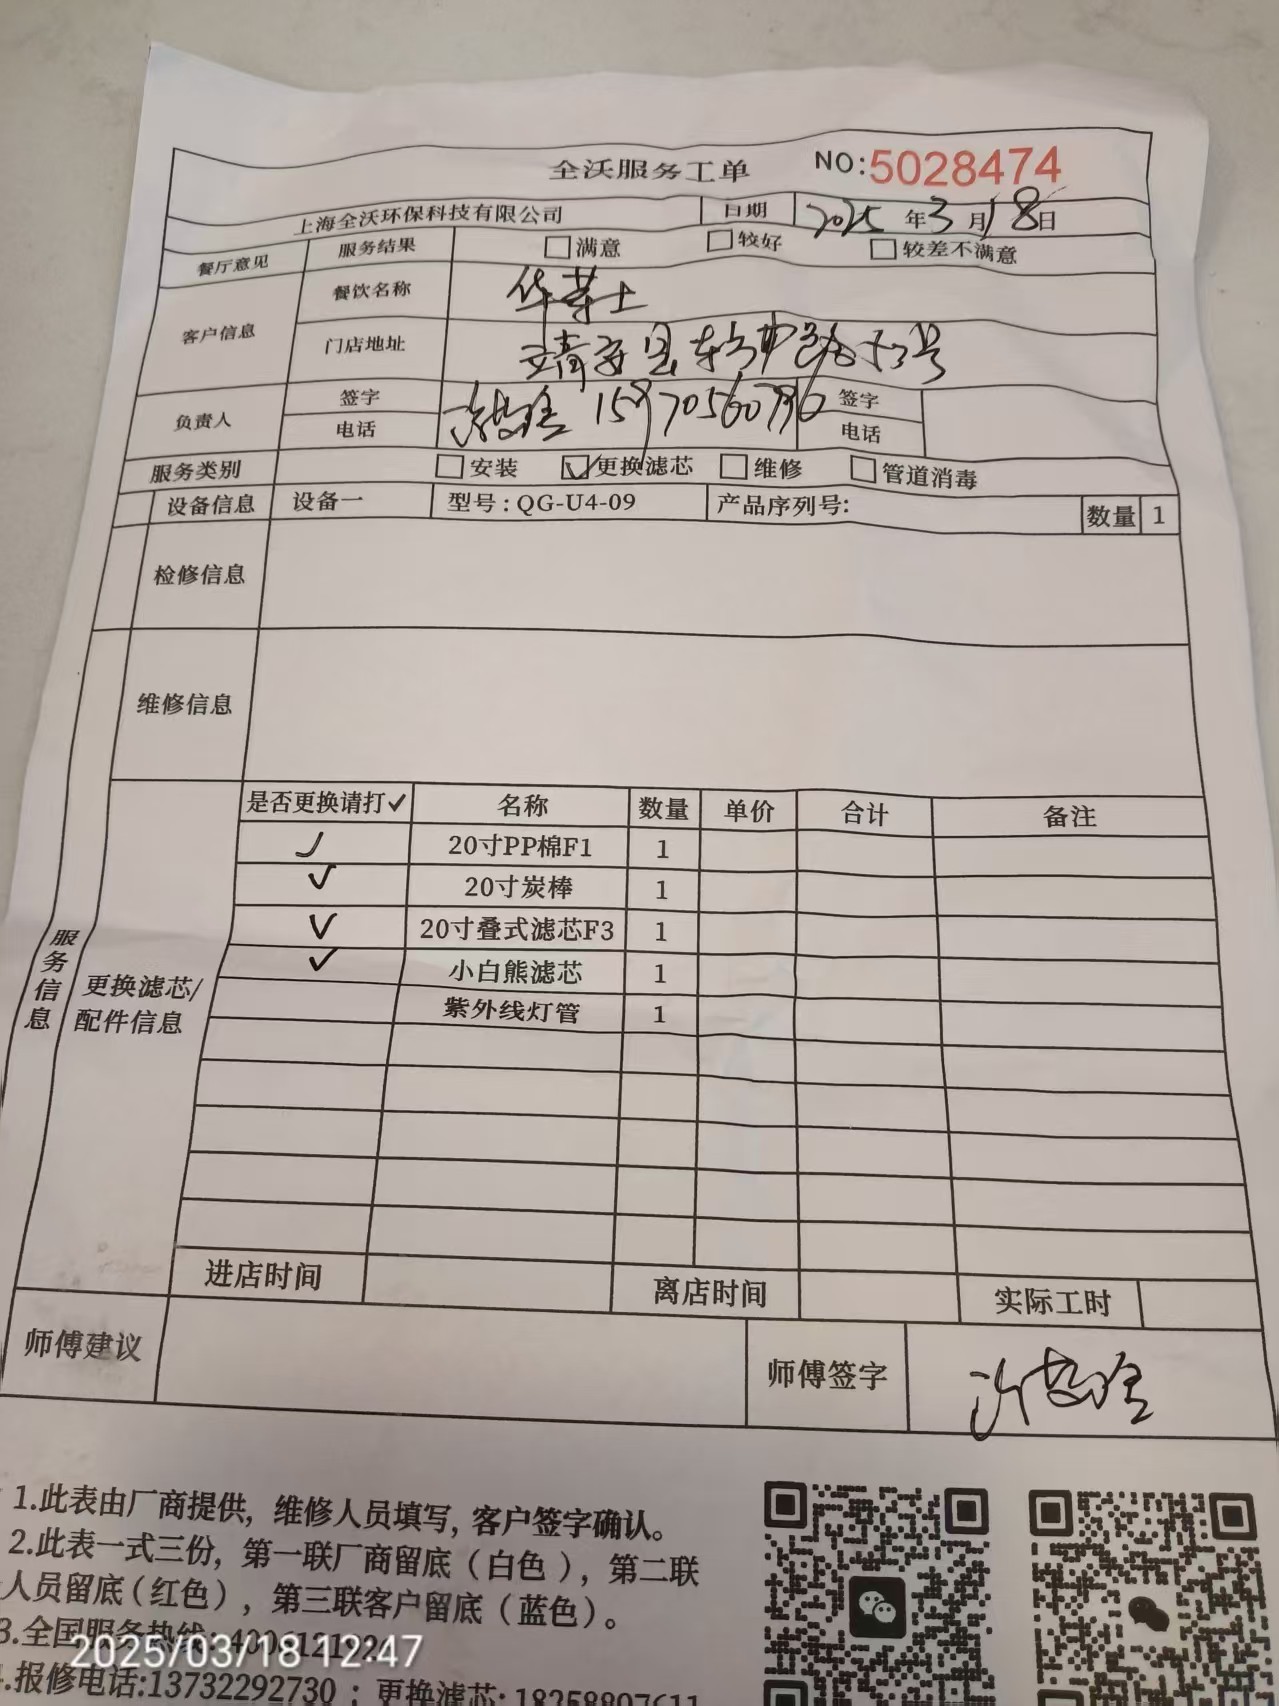 全沃服务工单 NO:5028474
上海全沃环保科技有限公司 日期 2025年3月18日
餐厅意见 服务结果 满意 较好 较差不满意
客户信息 餐饮名称 华莱士
门店地址 靖安县东方中路
负责人 签字 签字
电话 15970560796 电话
服务类别 安装 更换滤芯 维修 管道消毒
设备信息 设备一 型号:QG-U4-09 产品序列号: 数量 1
检修信息
维修信息
服务信息
更换滤芯/
配件信息
是否更换请打✓ 名称 数量 单价 合计 备注
✓ 20寸PP棉F1 1
✓ 20寸炭棒 1
✓ 20寸叠式滤芯F3 1
✓ 小白熊滤芯 1
紫外线灯管 1
进店时间 离店时间 实际工时
师傅建议 师傅签字
1.此表由厂商提供，维修人员填写，客户签字确认。
2.此表一式三份，第一联厂商留底（白色），第二联
人员留底（红色），第三联客户留底（蓝色）。
3.全国服务热线:
2025/03/18 12:47
报修电话:13732292730；更换滤芯:18258807611